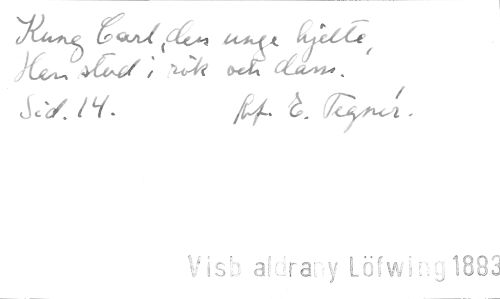 Kung Carl, den unge hjelte,
Han stod i rök och dam.
Sid. 14. Förf. E. Tegnér.
Visb aldrany Löfwing 1883